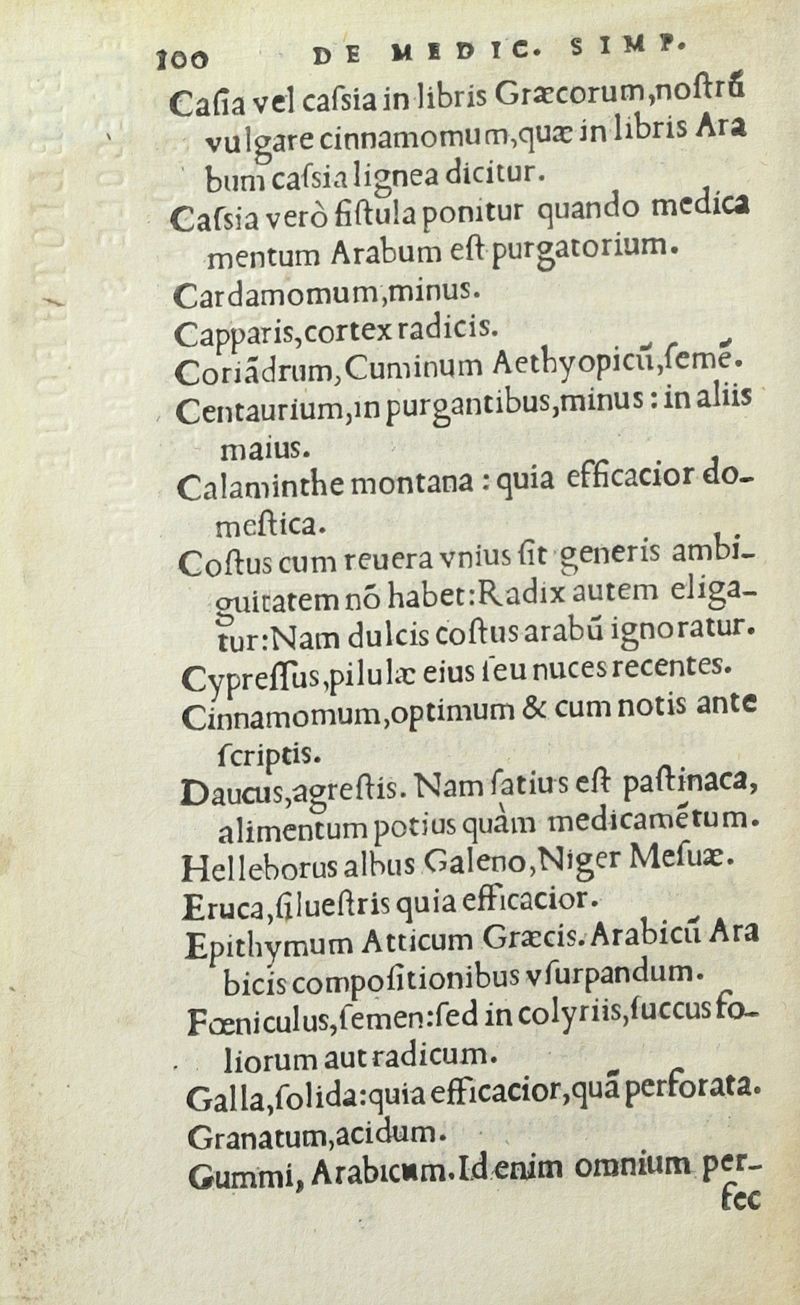 100 DE MEDIC. SIMP.
Caſia vel caſsia in libris Græcorum,noſtrũ
vulgare cinnamomum,quæ in libris Ara
bum caſsia lignea dicitur.
Caſsia verò fiſtula ponitur quando medica
mentum Arabum eſt purgatorium.
Cardamomum,minus.
Capparis,cortex radicis.
Coriãdrum,Cuminum Aethyopicũ,ſemẽ.
Centaurium,in purgantibus,minus: in aliis
maius.
Calaminthe montana: quia efficacior do-
meſtica.
Coſtus cum reuera vnius ſit generis ambi-
guitatem nõ habet:Radix autem eliga-
tur:Nam dulcis coſtus arabũ ignoratur.
Cypreſſus,pilulæ eius ſeu nuces recentes.
Cinnamomum,optimum & cum notis ante
ſcriptis.
Daucus,agreſtis. Nam ſatius eſt paſtinaca,
alimentum potius quàm medicamẽtum.
Helleborus albus Galeno,Niger Meſuæ.
Eruca,ſilueſtris quia efficacior.
Epithymum Atticum Græcis. Arabicũ Ara
bicis compoſitionibus vſurpandum.
Fœniculus,ſemen:ſed in colyriis,ſuccus fo-
liorum aut radicum.
Galla,ſolida:quia efficacior,quã perforata.
Granatum,acidum.
Gummi, Arabicum. Id enim omnium per-
fec